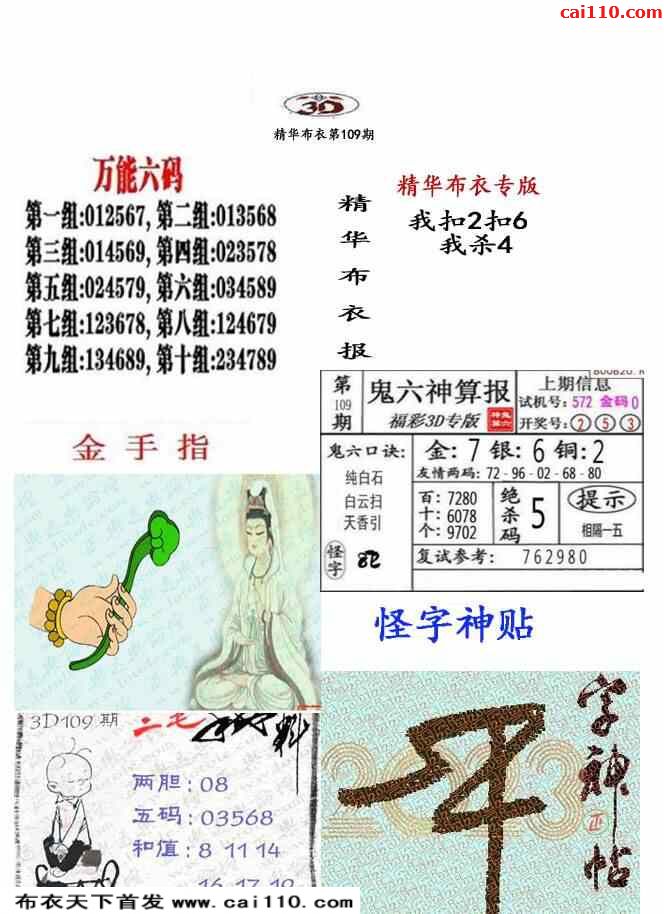 cai110.com
3D
精华布衣第109期
万能六码
第一组:012567,第二组:013568
第三组:014569,第四组:023578
第五组:024579,第六组:034589
第七组:123678,第八组:124679
第九组:134689,第十组:234789
精华布衣报
精华布衣专版
我扣2扣6
我杀4
金手指
第109期
鬼六神算报
福彩3D专版
上期信息
试机号:572 金码0
开奖号:②⑤③
鬼六口诀:
纯白石
白云扫
天香引
怪字
金:7 银:6 铜:2
友情两码:72-96-02-68-80
百:7280
十:6078
个:9702
绝杀码 5
提示
相隔一五
复试参考: 762980
怪字神贴
3D109期
二毛
料
两胆:08
五码:03568
和值:8 11 14
字神帖
2023
布衣天下首发 www.cai110.com